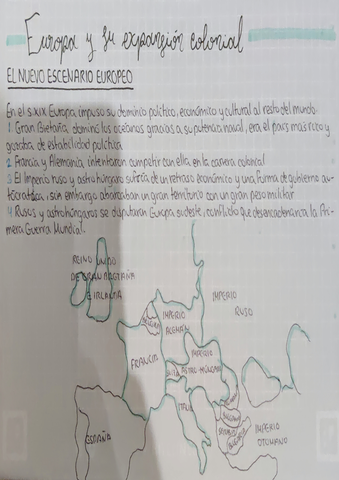 Europa y su expansión colonial
EL NUEVO ESCENARIO EUROPEO
En el s.XIX Europa impuso su dominio político, económico y cultural al resto del mundo.
1. Gran Bretaña, dominó los océanos gracias a su potencia naval, era el país más rico y
gozaba de estabilidad política
2. Francia y Alemania, intentaron competir con ella en la carrera colonial
3 El Imperio ruso y astrohúngaro sufría de un retraso económico y una forma de gobierno au-
tocrática, sin embargo abarcaban un gran territorio con un gran peso militar
4 Rusos y astrohúngaros se disputaron Europa sudeste, conflicto que desencadenaría la Pri-
mera Guerra Mundial.
REINO UNIDO
DE GRAN BRETAÑA
E IRLANDA
IMPERIO
RUSO
IMPERIO
ALEMÁN
BÉLGICA
FRANCIA
IMPERIO
ASTRO-HÚNGARO
SUIZA
ITALIA
ESPAÑA
IMPERIO
OTOMANO